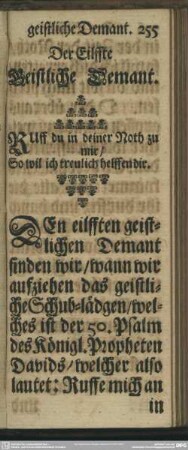 geistliche Demant. 255
Der Eilffte
Geistliche Demant.
RUff du in deiner Noth zu
mir/
So wil ich treulich helffen dir.
DEn eilfften geist-
lichen Demant
finden wir/ wann wir
aufziehen das geistli-
che Schub-lädgen/ wel-
ches ist der 50. Psalm
des Königl. Propheten
Davids/ welcher also
lautet: Ruffe mich an
in